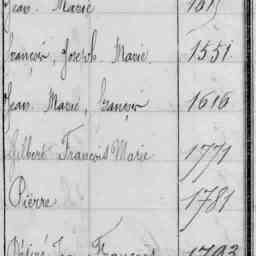 Jean Marie 1615
François, Joseph Marie 1551
Jean Marie, François 1616
Gilbert François Marie 1771
Pierre 1781
Désiré François 1793